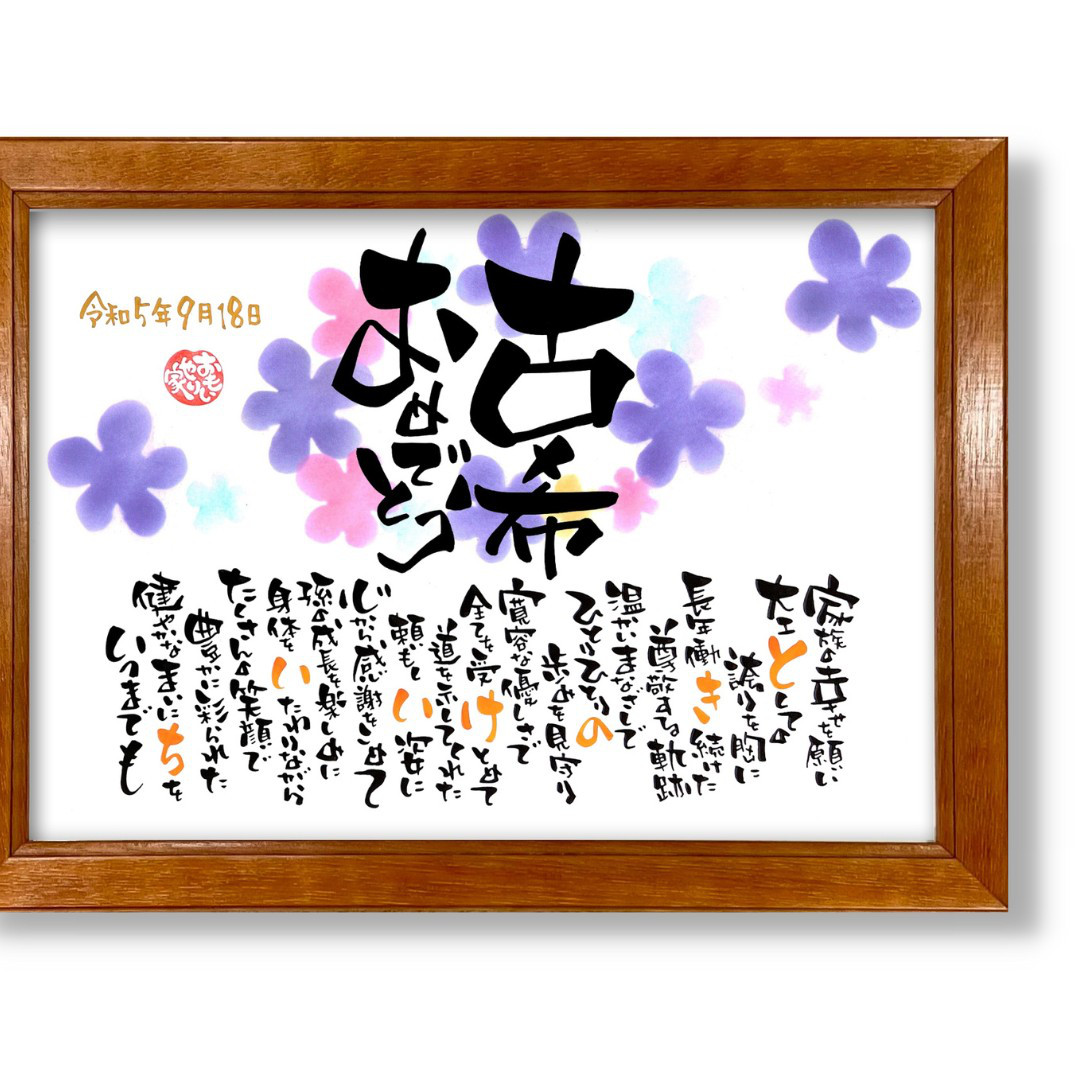 古希
おめでとう
令和5年9月18日
おもいやり家
家族の幸せを願い
大工としての
誇りを胸に
長年働き続けた
尊敬する軌跡
温かいまなざしで
ひとりひとりの
歩みを見守り
寛容な優しさで
全てを受けとめて
道を示してくれた
頼もしい姿に
心から感謝をこめて
孫の成長を楽しみに
身体をいたわりながら
たくさんの笑顔で
豊かに彩られた
健やかなまいにちを
いつまでも